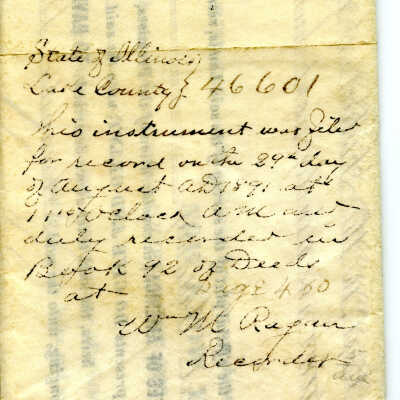 State of Illinois }
Lake County } 46601
This instrument was filed
for record on the 29th day
of August AD 1891 at
11 O'Clock AM and
duly recorded in
Book 92 of Deeds
at Page 460
Wm M Ragan
Recorder